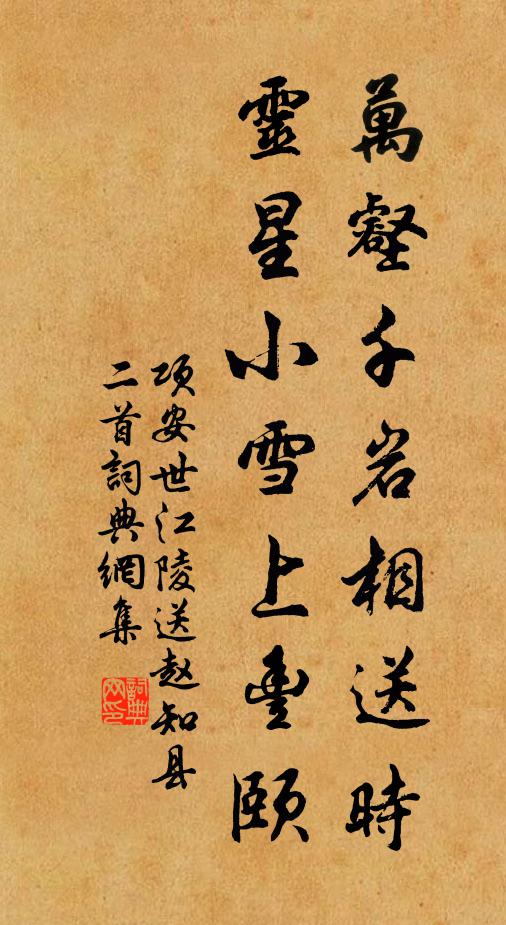 萬壑千岩相送時
靈星小雪上豊頤
项安世江陵送赵知县
二首詞典網集
詞典
网印